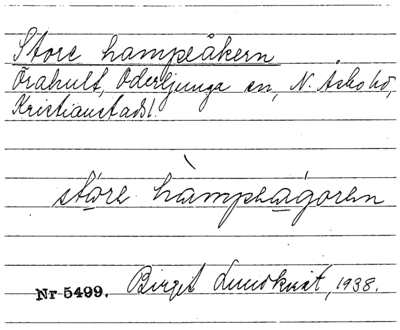 Store hampeåkern
Örahult, Oderljunga sn, N. Åsbo hd,
Kristianstads l.
støre hàmpeagoren
Nr 5499. Birgit Lundkvist, 1938.